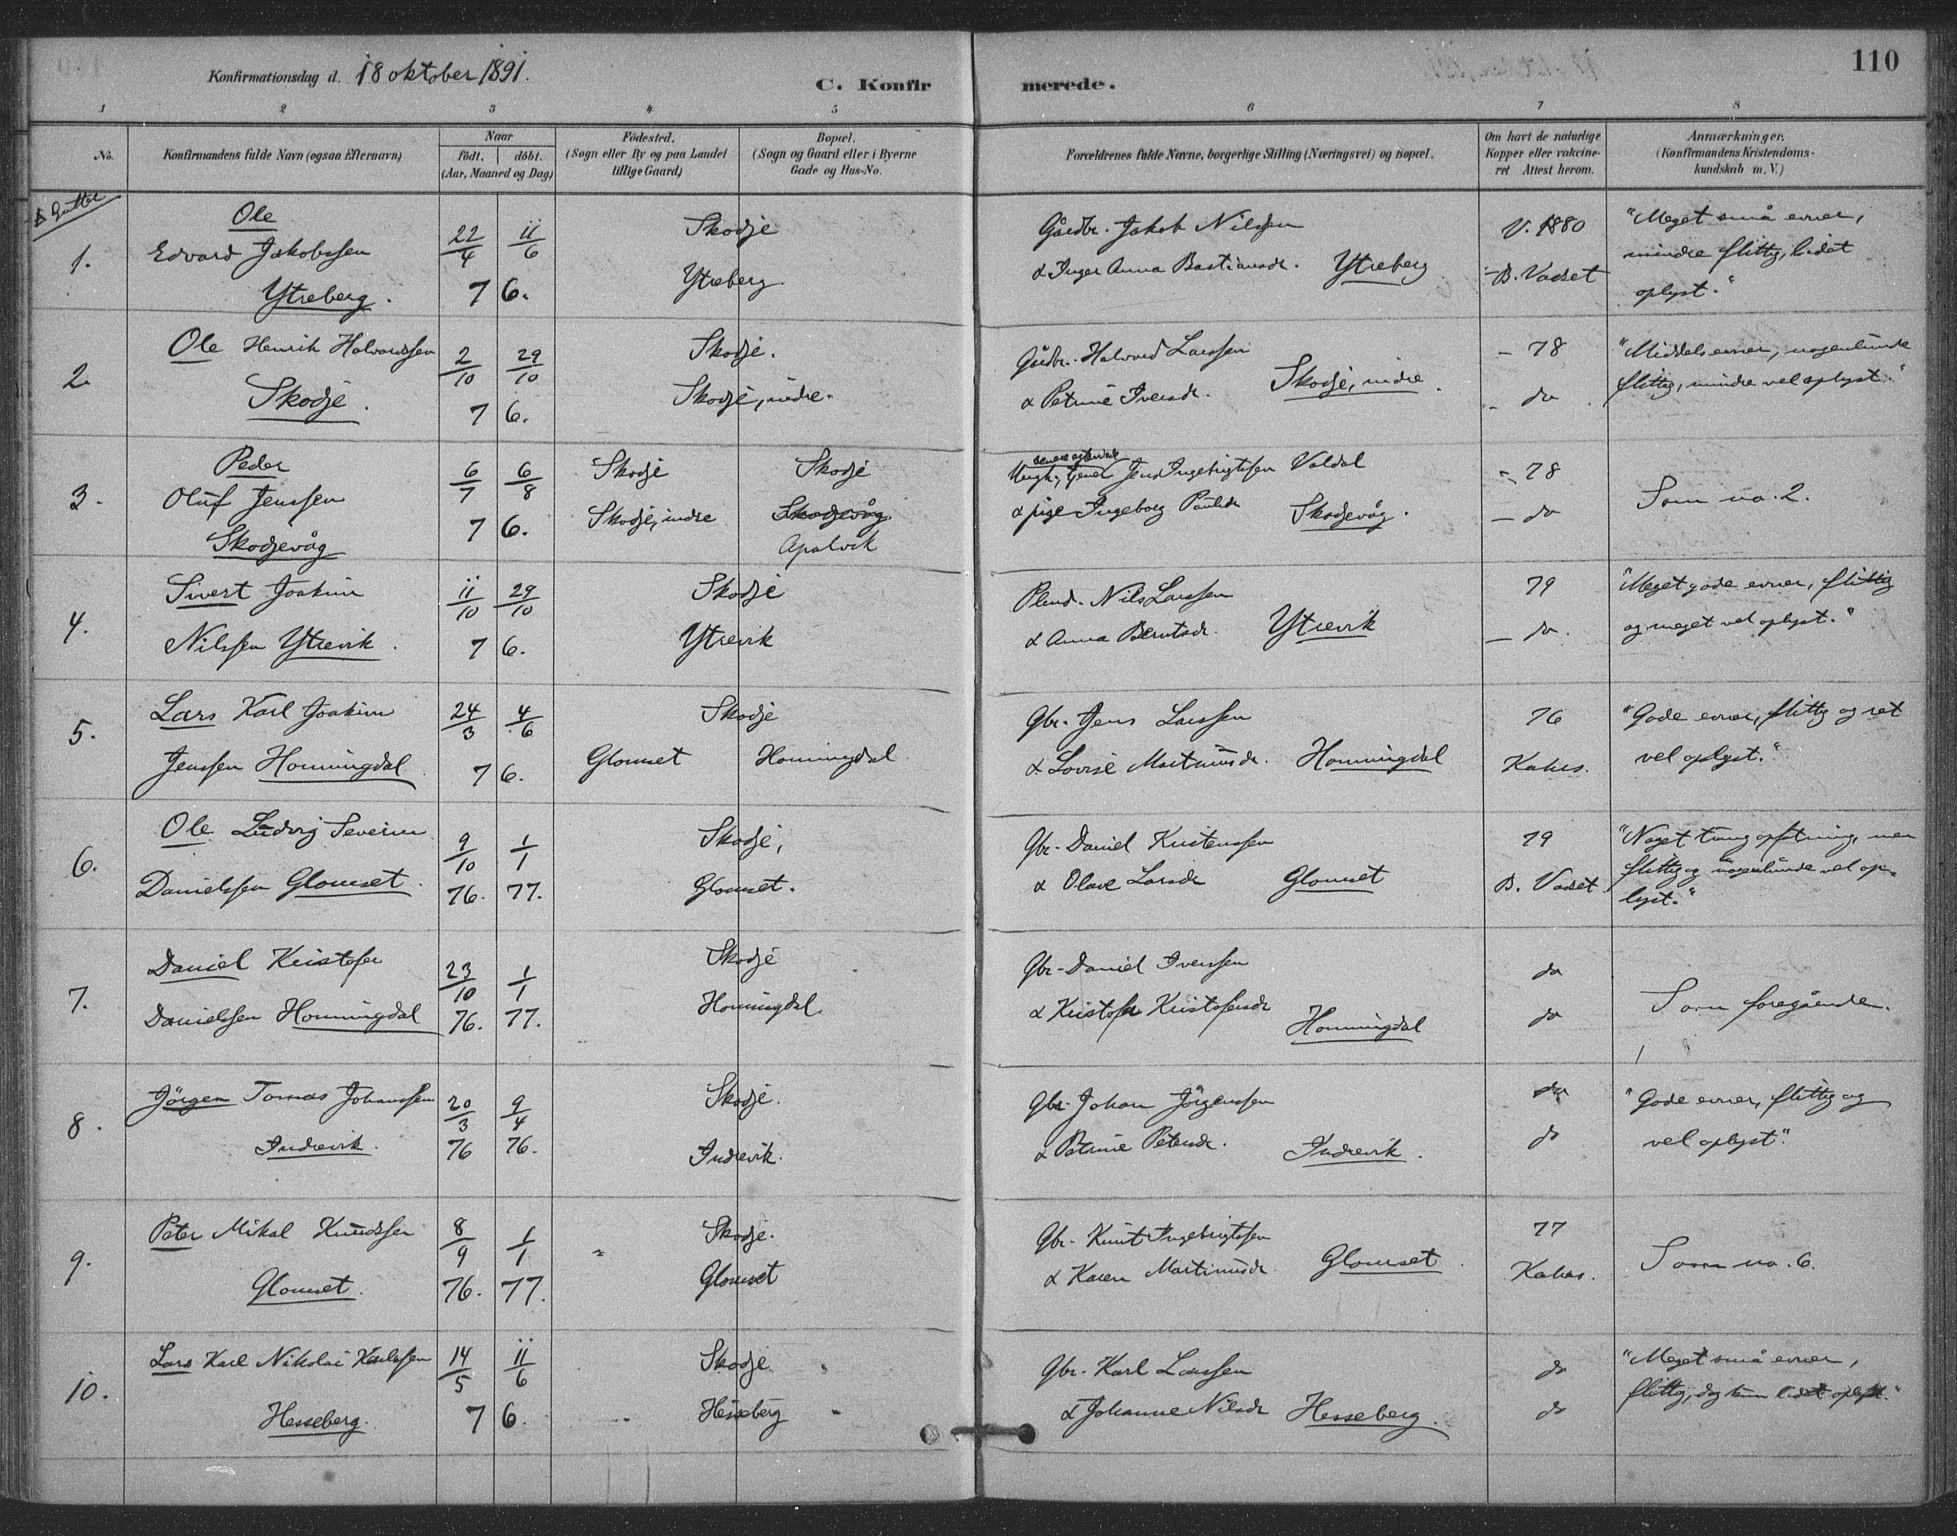 110
Konfirmationsdag d. 18 oktober 1891.
C. Konfirmerede.
1 2 3 4 5 6 7 8
No.
Konfirmandens fulde Navn (ogsaa Efternavn)
Naar
födt. döbt.
(Aar, Maaned og Dag)
Födested.
(Sogn eller By og paa Landet
tillige Gaard)
Bopæl.
(Sogn og Gaard eller i Byerne
Gade og Hus-No.
Forældrenes fulde Navne, borgerlige Stilling (Næringsvei) og Bopæl.
Om havt de naturlige
Kopper eller vakcine-
ret Attest herom.
Anmærkninger.
(Konfirmandens Kristendoms-
kundskab m. V.)
Gutter
1. Ole
Edvard Jakobssen
Ytreberg.
22/4 11/6
7 6.
Skodje
Ytreberg
Gårdbr. Jakob Nilssen
& Inger Anna Bastiansdr. Ytreberg
V. 1880
B. Vadset
"Meget små evner,
mindre flittig, lidet
oplyst."
2. Ole Henrik Halvardssen
Skodje.
2/10 29/10
7 6.
Skodje.
Skodje, indre.
Gårdbr. Halvard Larssen
& Petrine Iversdr. Skodje, indre.
– 78
– do
"Middels evner, nogenlunde
flittig, mindre vel oplyst."
3. Peder
Oluf Jenssen
Skodjevåg
6/7 6/8
7 6.
Skodje
Skodje, indre
Skodje
Skodjevåg
Apalvik
Ungk., tjener Jens Ingebrigtssen Valdal
& pige Ingeborg Paulsdr Skodjevåg.
– 78
– do
Som no. 2.
4. Sivert Joakim
Nilssen Ytrevik.
11/10 29/10
7 6.
Skodje
Ytrevik
Nils Larssen
& Anna Berntsdr. Ytrevik
79
– do.
"Meget gode evner, flittig
og meget vel oplyst."
5. Lars Karl Joakim
Jenssen Honningdal.
24/3 4/6
7 6.
Skodje
Glomset Honningdal.
Gbr. Jens Larssen
& Lovise Martinusdr. Honningdal
76
Kahrs.
"Gode evner, flittig og ret
vel oplyst."
6. Ole Ludvig Severin
Danielssen Glomset.
9/10 1/1
76. 77.
Skodje,
Glomset.
Gbr. Daniel Kristenssen
& Olave Larsdr Glomset
79
B. Vadset
"Noget tung opfatning, men
flittig og nogenlunde vel op-
lyst."
7. Daniel Kristofer
Danielssen Honningdal
23/10 1/1
76. 77.
Skodje
Honningdal.
Gbr. Daniel Iverssen
& Kristofa Kristofersdr
Honningdal
do
do
Som foregående.
8. Jörgen Tomas Johanssen
Indrevik.
20/3 9/4
76 76.
Skodje.
Indrevik.
Gbr. Johan Jörgenssen
& Petrine Petersdr. Indrevik.
do
do
"Gode evner, flittig og
vel oplyst."
9. Peter Mikal Knudssen
Glomset.
8/9 1/1
76. 77.
Skodje.
Glomset
Gbr. Knut Ingebrigtssen
& Karen Martinusdr. Glomset.
77
Kahrs.
Som no. 6.
10. Lars Karl Nikolai Karlssen
Hesseberg.
14/5 11/6
7 6.
Skodje
Hesseberg
Gbr. Karl Larssen
& Johanne Nilsdr Hesseberg.
do
do
"Meget små evner,
flittig, dog kun lidet oplyst."